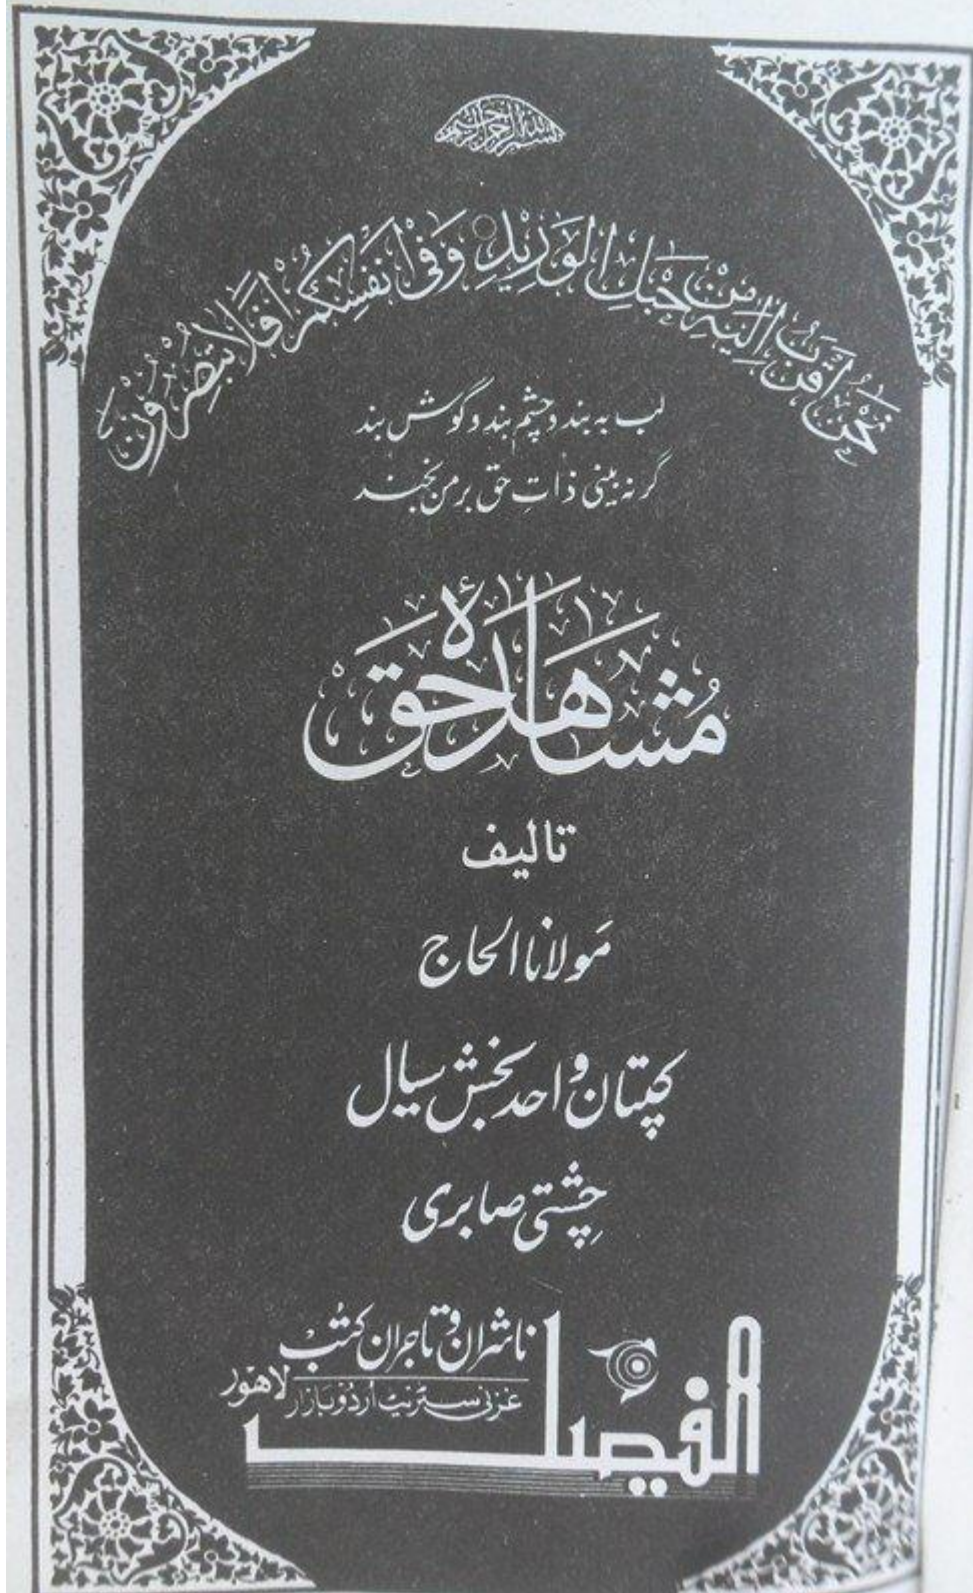 بسم الله الرحمن الرحيم
نَحْنُ اَقْرَبُ اِلَيْهِ مِنْ حَبْلِ الْوَرِيْدِ وَفِیْ اَنْفُسِكُمْ اَفَلَا تُبْصِرُوْنَ
لب بہ بند و چشم بند و گوش بند
گر نہ بینی ذاتِ حق بر من بخند
مُشاہدۂ حق
تالیف
مَولانا الحاج
کپتان واحد بخش سیال
چِشتی صابری
ناشران و تاجران کتُب
غزنی سٹریٹ اُردُو بازار لاہور
الفیصل